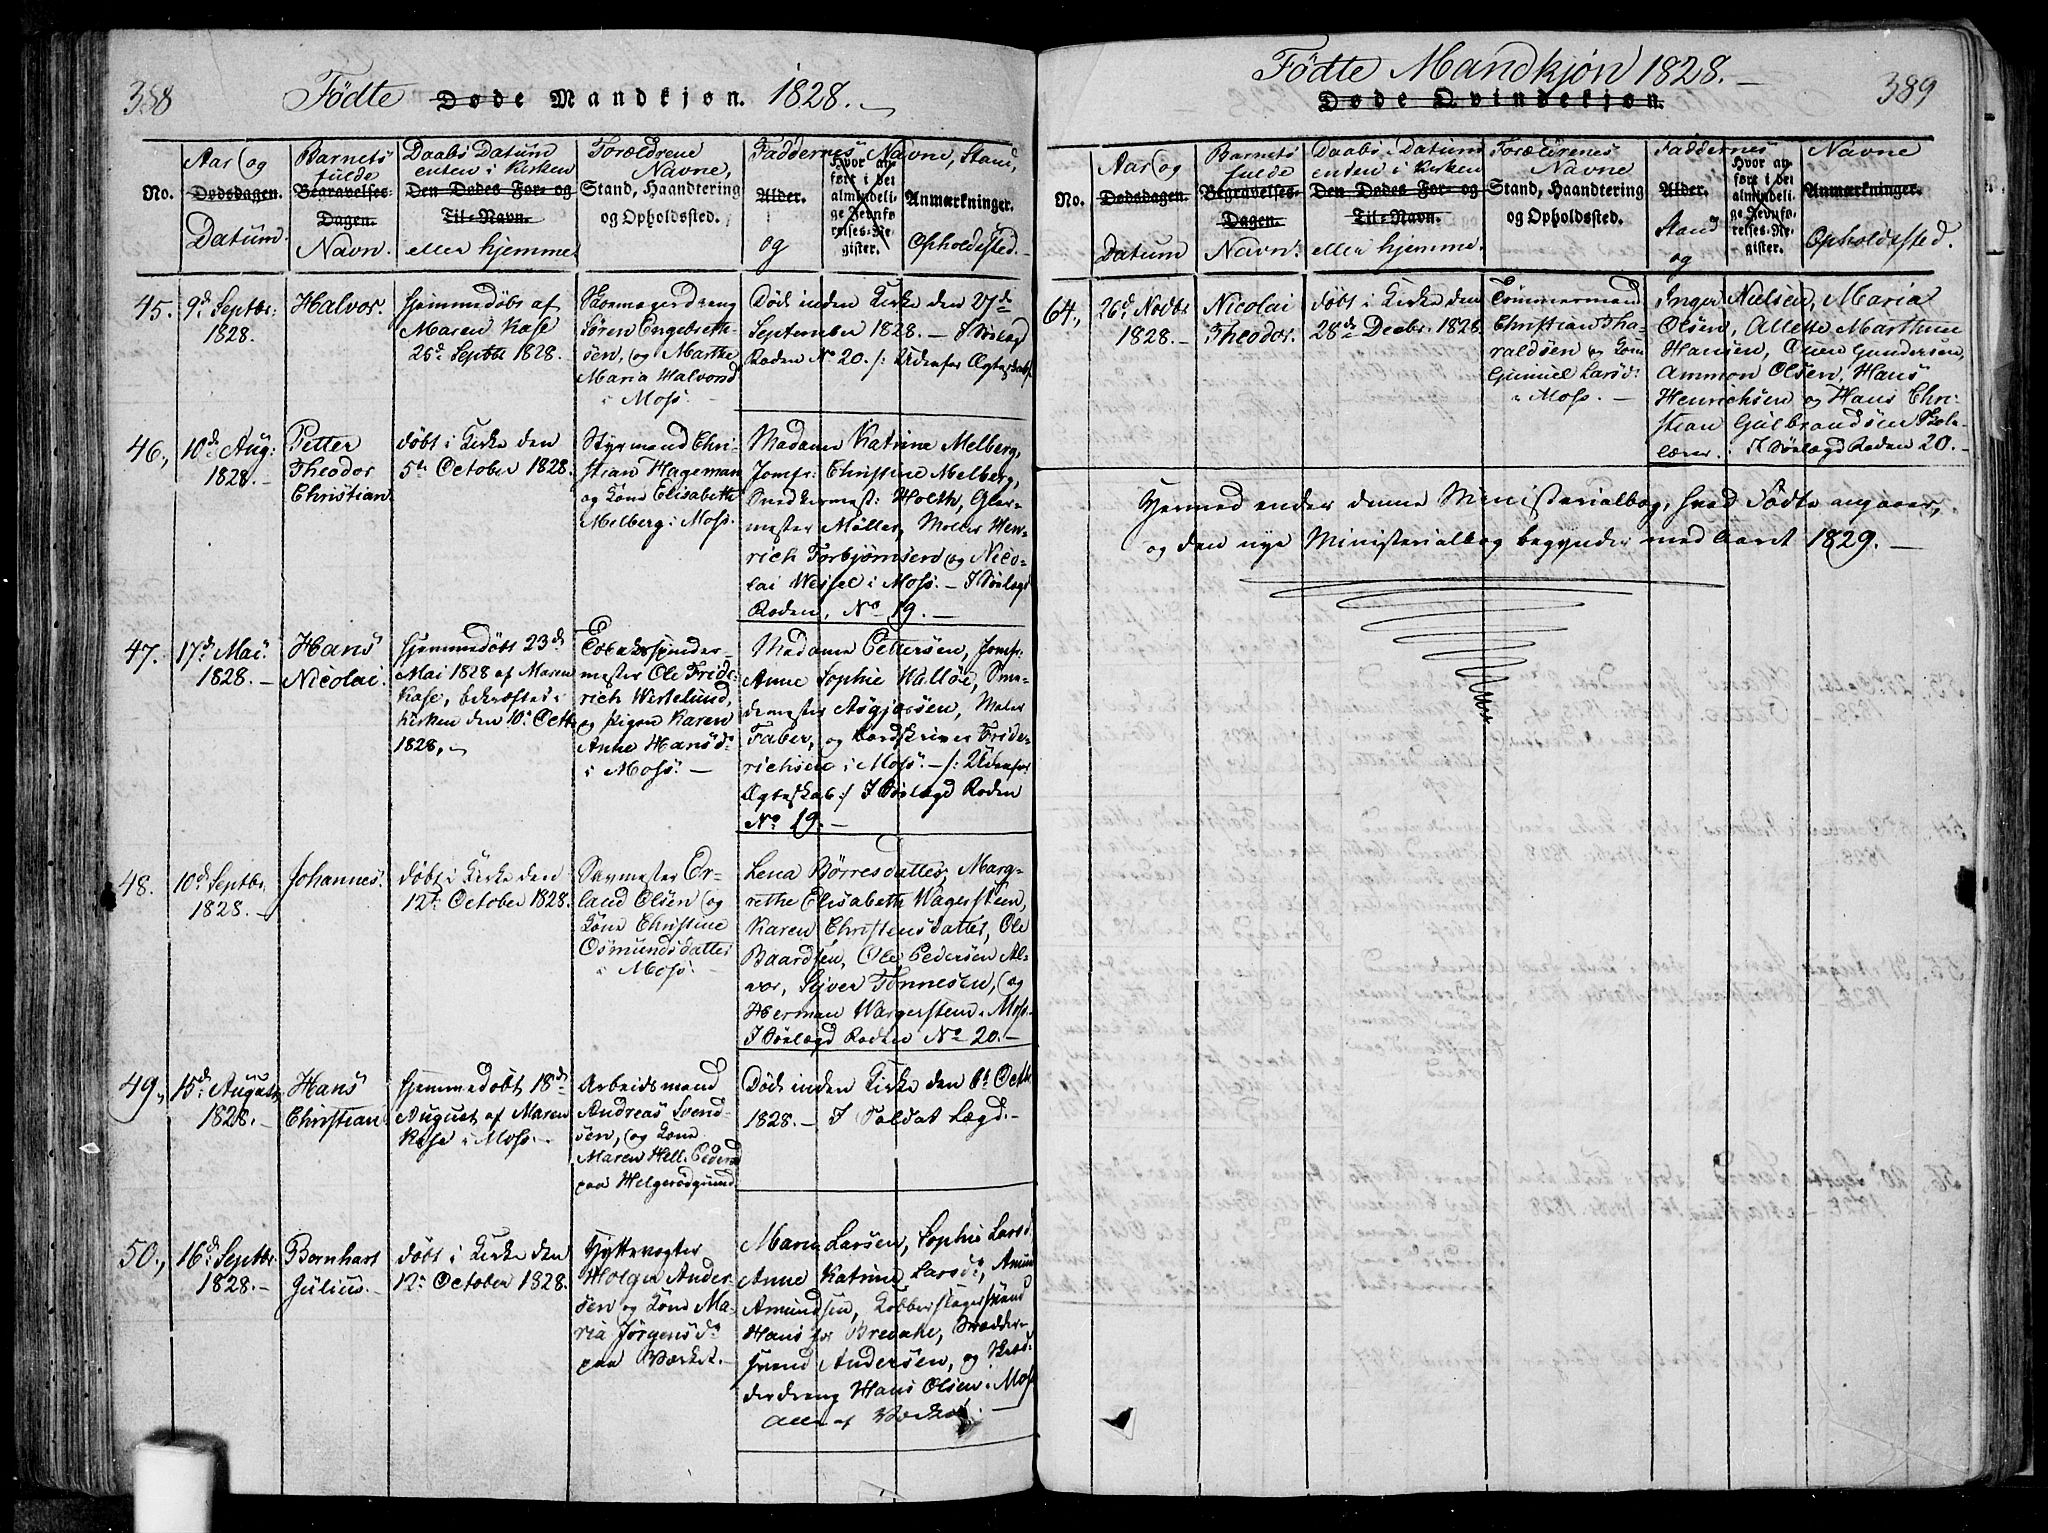 388
Födte Døde Mandkjøn. 1828.
No.
Aar og
Dødsdagen.
Datum.
Barnets
fulde
Begravelses-
Dagen.
Navn.
Daabs Datum
enten i Kirken
Den Dødes For- og
Til-Navn.
eller hjemme
Forældrene
Navne,
Stand, Haandtering
og Opholdssted.
Faddernes Navne, Stand,
Alder.
og
Hvor an-
ført i det
almindeli-
ge Jevnfø-
relses-Re-
gister.
Anmærkninger.
Opholdssted.
45.
9d Septbr:
1828.
Halvor.
Hjemmedöbt af
Maren Kase
26d Septbr 1828.
Skomagerdreng
Sören Engebrett-
sen, og Marthe
Maria Halvorsd
i Moss.
Död inden Kirke den 21de
September 1828. — I Sölægd
Roden No 20. /: Udenfor Ægteskab
46,
10d Aug:
1828.
Petter
Theodor
Christian
döbt i Kirke den
5te October 1828.
Styrmand Chri-
stian Hageman
og Kone Elisabeth
Melberg i Moss.
Madame Katrine Melberg,
Jomfr: Christine Melberg,
Snedkermest: Holth, Glar-
mester Möller, Moller Hen-
rich Torbjörnsen og Nico-
lai Wessel i Moss. — I Sölægd
Roden, No 19.
47.
17d Mai
1828.
Hans
Nicolai.
Hjemmedöbt 23de
Mai 1828 af Maren
Kase, bekræftet i
Kirken den 10de Octbr
1828,
Tobakspinder-
mester Ole Fride-
rich Westelund,
og pigen Karen
Anne Hansd:
i Moss.
Madame Pettersen, Jomfr:
Anne Sophie Walløe, Sme-
demester Asgjorsen, Maler
Faber, og Bordskriver Fride-
richsen i Moss. — /: Udenfor
Ægteskab :/ I Sölægd Roden
No 19.
48.
10d Septbr.
1828.
Johannes.
döbt i Kirke den
12te October 1828.
Savmester Er-
land Olsen og
Kone Christine
Osmundsdatter
i Moss.
Lena Börresdatter, Marg-
rethe Elisabeth Wagersteen,
Karen Christensdatter, Ole
Baardsen, Ole Pedersen Al-
vor, Syver Tønnesen, og
Herman Wargersten i Moss.
I Sölægd Roden No 20.
49.
15d August
1828.
Hans
Christian
Hjemmedöbt 18de
August af Maren
Kase i Moss.
Arbeidsmand
Andreas Svend-
sen, og Kone
Maren Hell: Pedersd
paa Helgerödgrund
Död inden Kirke den 6te Octbr
1828. — I Soldat Lægd.
50.,
16d Septbr.
1828.
Bernhart
Julius.
döbt i Kirke den
12te October 1828.
Hyttevogter
Holger Ander-
sen og Kone Ma-
ria Jörgensd:
paa Værket.
Maria Larsen, Sophie Larsd:
Anne Katrine Larsd:, Amund
Amundsen, Kobberslagersvend
Hans Bredahe, Snedker-
svend Andersen, og
derdreng Hans Olsen i Moss
alle af Værket.
Födte Mandkjön 1828.
Døde Qvindekjøn.
389
No.
Aar og
Dødsdagen.
Datum
Barnets
fulde
Begravelses-
Dagen.
Navn.
Daabs Datum
enten i Kirken
Den Dødes For- og
Til-Navn.
eller hjemme.
Forældrenes
Navne
Stand, Haandtering
og Opholdssted.
Faddernes
Alder.
Stand
og
Hvor an-
ført i det
almindeli-
ge Jevnfø-
relses-Re-
gister.
Navne
Anmærkninger.
Opholdssted.
64.,
26d Novbr
1828.
Nicolai
Theodor.
döbt i Kirke den
28de Decbr. 1828.
Tömmermand
Christian Tha-
raldsen og Kone
Gunniel Larsd:
i Moss.
Inger Nielsen, Maria
Olsen, Allette Marthine
Hansen, Ouen Gundersen,
Ammon Olsen, Hans
Henrichsen og Hans Chri-
stian Gulbrandsen Skole-
lærer. I Sölægd Roden 20.
Hermed ender denne Ministerialbog, hvad Födte angaaer,
og den nye Ministerialbog begynder med Aaret 1829.